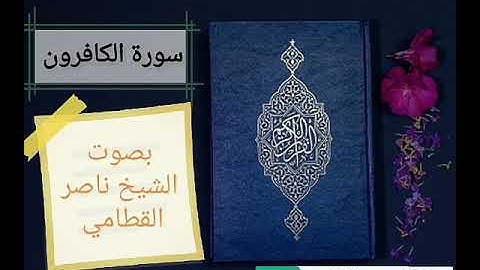 سورة الكافرون
بصوت
الشيخ ناصر
القطامي
القرآن الكريم